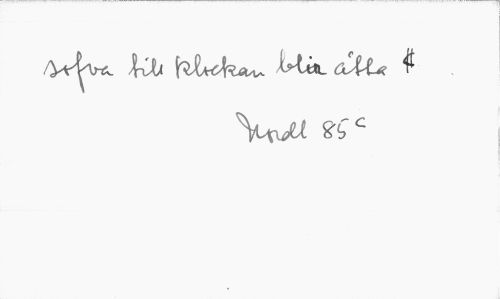 sofva till klockan blir åtta ¢
Nordl 85 c